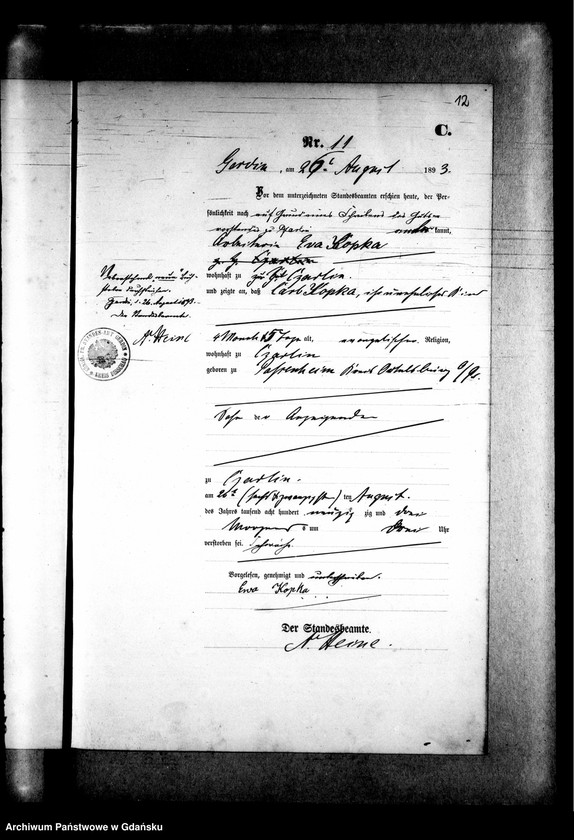 12
C.
Nr. 11
Gerdin, am 26t August 1893.
Vor dem unterzeichneten Standesbeamten erschien heute, der Per-
sönlichkeit nach auf Grund eines Schreibens des Guts-
vorstandes zu Czarlin kannt,
Arbeiterin Eva Kopka
wohnhaft zu Czarlin.
und zeigte an, daß Carl Kopka, ihr uneheliches Kind
4 Monate 15 Tage alt, evangelischer Religion,
wohnhaft zu Czarlin
geboren zu Passenheim Kreis Ortelsburg O/Pr.
Sohn der Anzeigenden
zu Czarlin.
am 26t (sechsundzwanzigsten) ten August.
des Jahres tausend acht hundert neunzig zig und drei
Morgens um drei Uhr
verstorben sei.
Vorgelesen, genehmigt und unterschrieben.
Eva Kopka
Der Standesbeamte.
A. Heine.
Gerdin, d. 26. August 1893.
Der Standesbeamte.
A. Heine
Archiwum Państwowe w Gdańsku